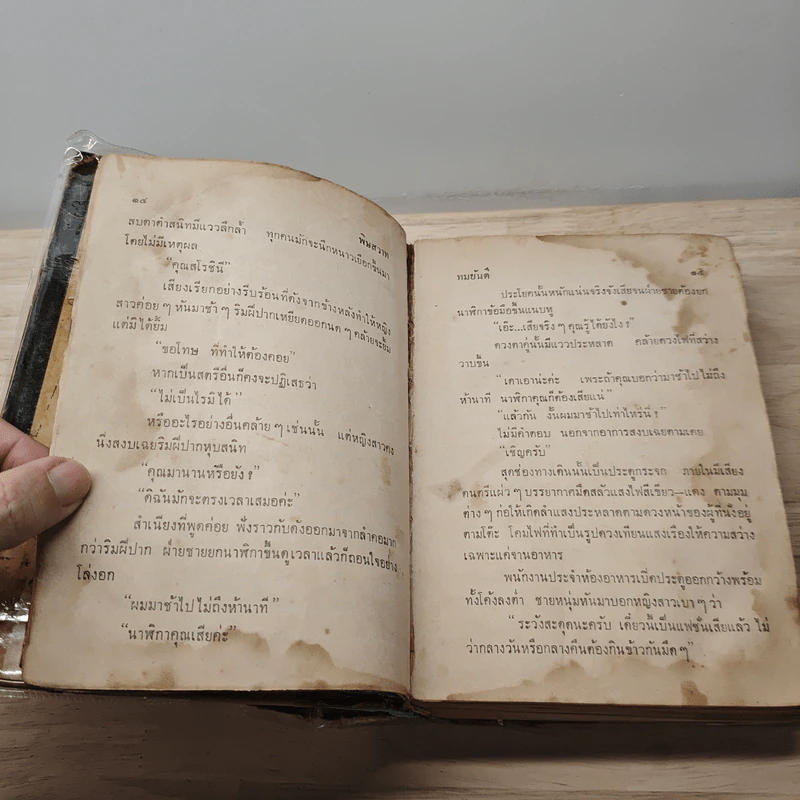 ๑๔
พิษสวาท
สบตาดำสนิทมีแววลึกล้ำ ทุกคนมักจะนึกหนาวเยือกขึ้นมา
โดยไม่มีเหตุผล
“คุณสโรชินี”
เสียงเรียกอย่างรีบร้อนที่ดังจากข้างหลังทำให้หญิง
สาวค่อย ๆ หันมาช้า ๆ ริมฝีปากเหยียดออกนิด ๆ คล้ายจะยิ้ม
แต่มิได้ยิ้ม
“ขอโทษ ที่ทำให้ต้องคอย”
หากเป็นสตรีอื่นก็คงจะปฏิเสธว่า
“ไม่เป็นไรมิได้”
หรืออะไรอย่างอื่นคล้าย ๆ เช่นนั้น แต่หญิงสาวคง
นิ่งสงบเฉยริมฝีปากหุบสนิท
“คุณมานานหรือยัง ?”
“ดิฉันมักจะตรงเวลาเสมอค่ะ”
สำเนียงที่พูดค่อย ฟังราวกับดังออกมาจากลำคอมาก
กว่าริมฝีปาก ฝ่ายชายยกนาฬิกาขึ้นดูเวลาแล้วก็ถอนใจอย่าง
โล่งอก
“ผมมาช้าไปไม่ถึงห้านาที”
“นาฬิกาคุณเสียค่ะ”
ทมยันตี
๑๕
ประโยคนั้นหนักแน่นจริงจังเสียจนฝ่ายชายต้องยก
นาฬิกาข้อมือขึ้นแนบหู
“เอ๊ะ...เสียจริง ๆ คุณรู้ได้ยังไง ?”
ดวงตาคู่นั้นมีแววประหลาด คล้ายดวงไฟที่สว่าง
วาบขึ้น
“เดาเอาน่ะค่ะ เพราะถ้าคุณบอกว่ามาช้าไปไม่ถึง
ห้านาที นาฬิกาคุณก็ต้องเสียแน่”
“แล้วกัน งั้นผมมาช้าไปเท่าไหร่นี่ ?”
ไม่มีคำตอบ นอกจากอาการสงบเฉยตามเคย
“เชิญครับ”
สุดช่องทางเดินนั้นเป็นประตูกระจก ภายในมีเสียง
ดนตรีแผ่ว ๆ บรรยากาศมืดสลัวแสงไฟสีเขียว—แดง ตามมุม
ต่าง ๆ ก่อให้เกิดลำแสงประหลาดตามดวงหน้าของผู้ที่นั่งอยู่
ตามโต๊ะ โคมไฟที่ทำเป็นรูปดวงเทียนแสงเรืองให้ความสว่าง
เฉพาะแค่จานอาหาร
พนักงานประจำห้องอาหารเปิดประตูออกกว้างพร้อม
ทั้งโค้งลงต่ำ ชายหนุ่มหันมาบอกหญิงสาวเบา ๆ ว่า
“ระวังสะดุดนะครับ เดี๋ยวนี้เป็นแฟชั่นเสียแล้ว ไม่
ว่ากลางวันหรือกลางคืนต้องกินข้าวกันมืด ๆ”